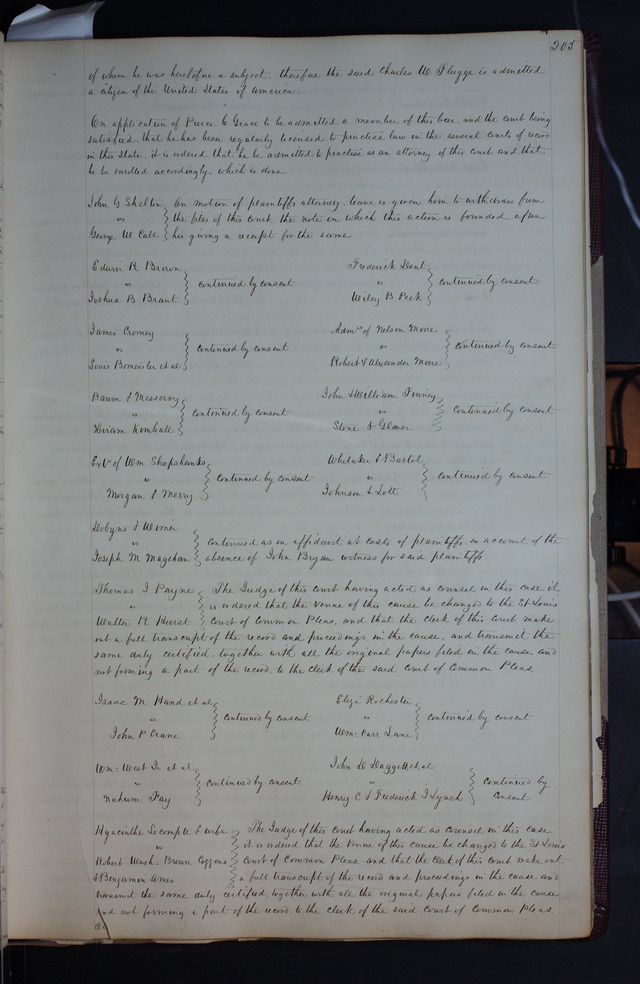 205
of whom he was heretofore a subject. therefore the said Charles W. Flugge is admitted
a citizen of the United States of America.
On application of Pierce C Grace to be admitted a member of this bar, and the court being
satisfied that he has been regularly licensed to practise law in the several courts of record
in this State, it is ordered that he be admitted to practise as an attorney of this court and that
he be enrolled accordingly. which is done.
John G Shelton } On motion of plaintiffs attorney. leave is given him to withdraw from
vs } the files of this court the note on which this action is founded upon
George W. Call } his giving a receipt for the same
Edwin R Brown
vs } continued by consent
Joshua B Brant
Frederick Dent
vs } continued by consent.
Wiley B Peck
James Cromey
vs } continued by consent
Louis Bomeister et al
Admrs of Nelson Moore
vs } continued by consent
Robert & Alexander Moore
Baum & Messervy
vs } continued by consent
Hiriam Kimball
John & William Finney
vs } continued by consent
Stone & Glover
Exrs of Wm Sheepshanks
vs } continued by consent
Morgan & Merry
Whitaker & Bartol
vs } continued by consent
Johnson L Lott
Dobyns &
vs } continued as on affidavit at costs of plaintiffs. on account of the
Joseph M Maychan } absence of John Bryan witness for said plaintiffs
Thomas J Payne } The Judge of this court having acted as counsel in this case it
vs } is ordered that the venue of this cause be changed to the St Louis
Walter R Hurst } Court of Common Pleas, and that the clerk of this court make
out a full transcript of the record and proceedings in the cause, and transmit the
same duly certified, together with all the original papers filed in the cause and
not forming a part of the record, to the clerk of the said court of Common Pleas.
Isaac M Hand et al
vs } continued by consent
John P Crane
Eliza Rochester
vs } continued by consent
Wm: Carr Lane
Wm: West Jr et al
vs } continued by consent
Nahum Fay
John D Daggett et al
vs } continued by
Henry C & Frederick J Lynch } Consent.
Hyacinthe Lecompte & wife } The Judge of this court having acted as counsel in this case
vs } it is ordered that the venue of this cause be changed to the St Louis
Robert Wash: Brown Cozzens } Court of Common Pleas, and that the Clerk of this court make out
& Benjamin Ames } a full transcript of the record and proceedings in the cause and
transmit the same duly certified, together with all the original papers filed in the cause
and not forming a part of the record, to the clerk of the said court of Common Pleas.